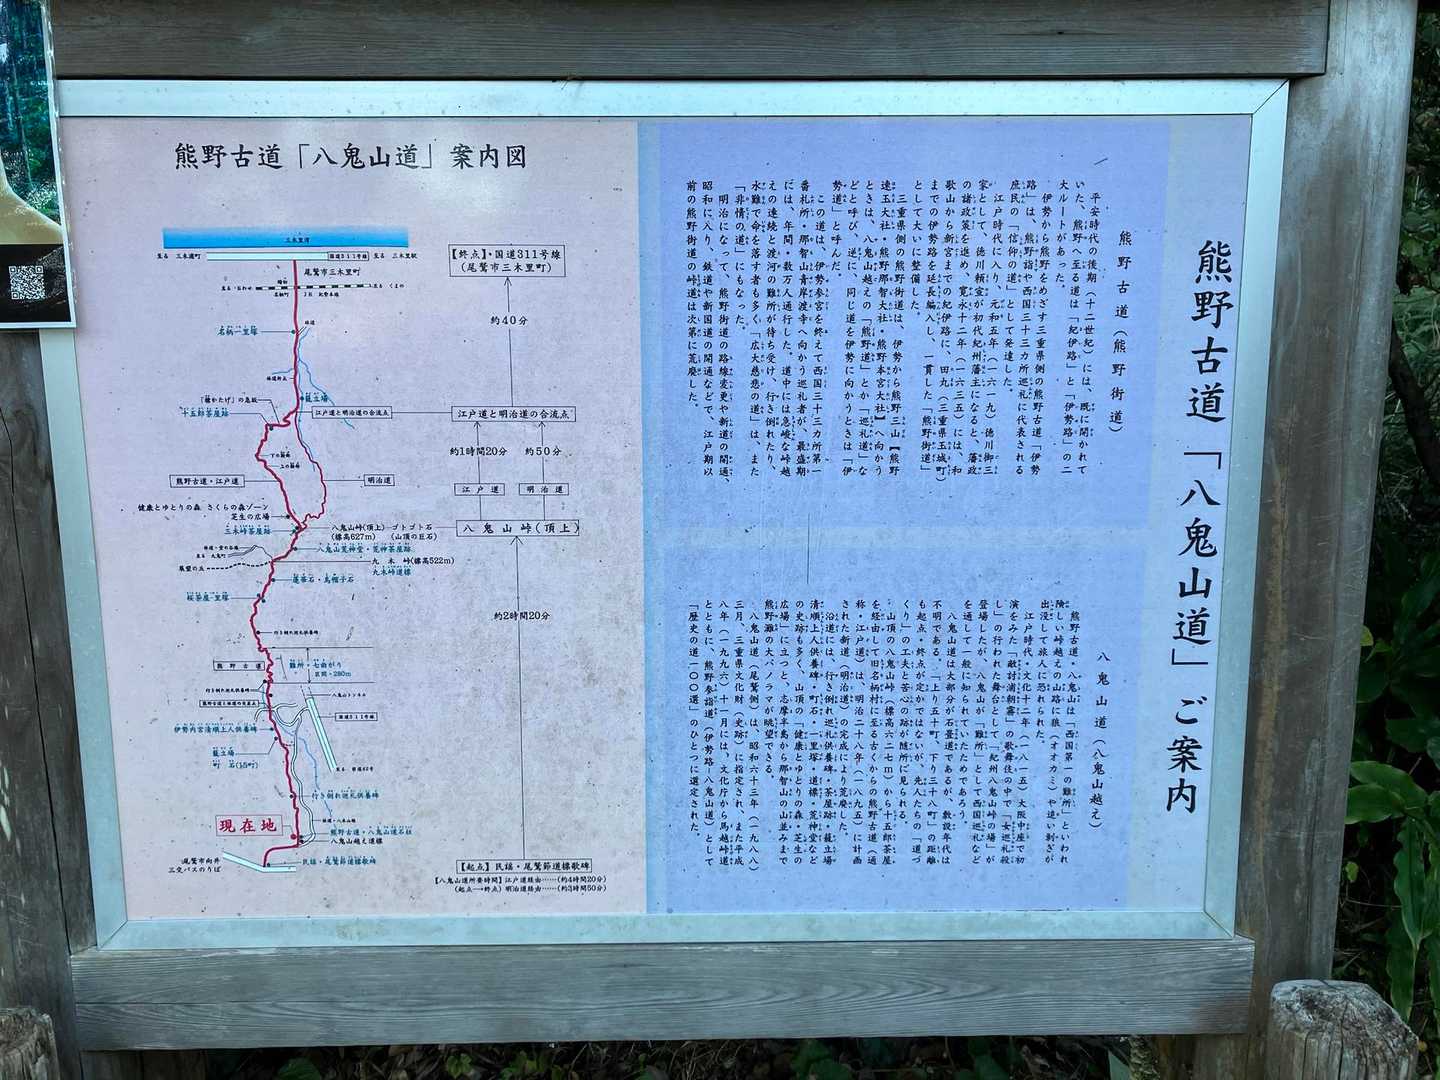 熊野古道「八鬼山道」ご案内
熊野古道(熊野街道)
平安時代の後期(十二世紀)には、既に開かれて
いた、熊野へ至る道は「紀伊路」と「伊勢路」の二
大ルートがあった。
伊勢から熊野をめざす三重県側の熊野古道「伊勢
路」は、熊野詣や西国三十三カ所巡礼に代表される
庶民の「信仰の道」として発達した。
江戸時代に入り、元和五年(一六一九)徳川御三
家として、徳川頼宣が初代紀州藩主になると、藩政
の諸政策を進め、寛永十二年(一六三五)には、和
歌山から新宮までの紀伊路に、田丸(三重県玉城町)
までの伊勢路を延長編入し、一貫した「熊野街道」
として大いに整備した。
三重県側の熊野街道は、伊勢から熊野三山【熊野
速玉大社・熊野那智大社・熊野本宮大社】へ向かう
ときは、八鬼山越えの「熊野道」とか「巡礼道」な
どと呼び、逆に、同じ道を伊勢に向かうときは「伊
勢道」と呼んだ。
この道は、伊勢参宮を終えて西国三十三カ所第一
番札所・那智山青岸渡寺へ向かう巡礼者が、最盛期
には、年間・数万人通行した。道中には急峻な峠越
えの連続と渡河の難所が待ち受け、行き倒れたり
水難で命を落す者も多く、「広大慈悲の道」は、また
「非情の道」にもなった。
明治になって、熊野街道の路線変更や新道の開通、
昭和に入り、鉄道や新国道の開通などで、江戸期以
前の熊野街道の峠道は次第に荒廃した。
八鬼山道(八鬼山越え)
熊野古道・八鬼山は「西国第一の難所」といわれ
険しい峠越えの山路に狼(オオカミ)や追い剥ぎが
出没して旅人に恐れられた。
江戸時代・文化十二年(一八一五)大阪中座で初
演をみた「敵討浦朝霧」の歌舞伎の中で「女巡礼殺
し」の行われた舞台として「紀州八鬼山峠の場」が
登場してたが、八鬼山が「難所」として西国巡礼など
を通して一般に知られていたためであろう。
八鬼山道は大部分が石畳道であるが、敷設年代は
不明である。「上り五十町、下り三十八町」の距離
も起点・終点が定かではないが、先人たちの「道づ
くり」の工夫と苦心の跡が随所に見られる。
山頂の八鬼山峠(標高六二七m)から十五郎茶屋
を経由して旧名柄村に至る古くからの熊野古道(通
称・江戸道)は、明治二十八年(一八九五)に計画
された新道(明治道)の完成により荒廃した。
沿道には、行き倒れ巡礼供養碑・茶屋跡・籠立場
清順上人供養碑・町石・一里塚・道標・荒神堂など
の史跡も多く、山頂の「健康とゆとりの森・芝生の
広場」に立つと、志摩半島から那智山の山並みまで
熊野灘の大パノラマが眺望できる。
八鬼山道(尾鷲側)は、昭和六十三年(一九八八)
三月、三重県文化財(史跡)に指定され、また平成
八年(一九九六)十一月には、文化庁から馬越峠道
とともに、熊野参詣道(伊勢路-八鬼山道)として
「歴史の道一〇〇選」のひとつに選定された。
熊野古道「八鬼山道」案内図
三木里湾
至る 三木浦町
国道311号線
至る 三木里駅
尾鷲市三木里町
名柄町
JR 紀勢本線
名柄一里塚
林道
籠立場
「種かたげ」の急坂
十五郎茶屋跡
江戸道と明治道の合流点
熊野古道・江戸道
明治道
健康とゆとりの森 さくらの森ゾーン
芝生の広場
三木峠茶屋跡
八鬼山峠(頂上) ゴトゴト石
(標高627m) (山頂の巨石)
八鬼山荒神堂・荒神茶屋跡
九木峠(標高522m)
九木峠道標
展望の丘
蓮華石・烏帽子石
桜茶屋一里塚
行き倒れ巡礼供養碑
熊野古道
難所・七曲がり
区間・280m
行き倒れ巡礼供養碑
八鬼山トンネル
熊野古道と林道の交差点
国道311号線
伊勢内宮清順上人供養碑
籠立場
町石(15町)
至る 国道42号
行き倒れ巡礼供養碑
現在地
熊野古道・八鬼山道石柱
八鬼山越え道標
尾鷲市向井
三交バスのりば
民謡・尾鷲節道標歌碑
【終点】・国道311号線
(尾鷲市三木里町)
約40分
江戸道と明治道の合流点
約1時間20分
約50分
江戸道
明治道
八鬼山峠(頂上)
約2時間20分
【起点】民謡・尾鷲節道標歌碑
【八鬼山道所要時間】江戸道経由……(約4時間20分)
(起点→終点) 明治道経由……(約3時間50分)